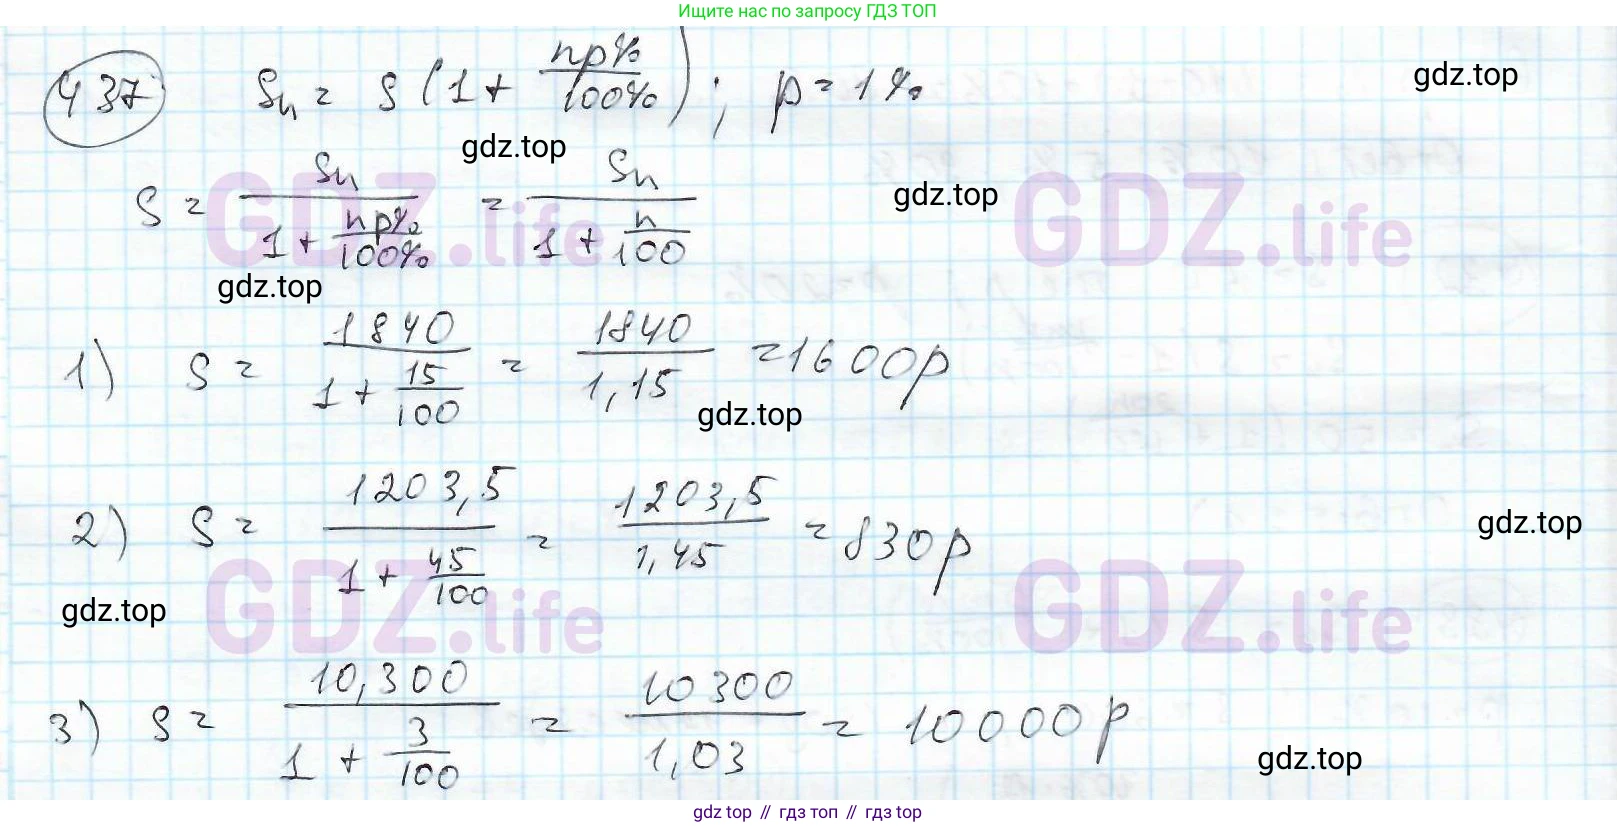 Ищите нас по запросу ГДЗ ТОП
437 Sn = S (1 + np%/100%); p = 1%
gdz.top
gdz.top
S = Sn/(1 + np%/100%) = Sn/(1 + n/100)
gdz.top
GDZ.life
GDZ.life
gdz.top
1) S = 1840/(1 + 15/100) = 1840/1,15 = 1600р
gdz.top
2) S = 1203,5/(1 + 45/100) = 1203,5/1,45 = 830р
gdz.top
GDZ.life
GDZ.life
gdz.top
3) S = 10,300/(1 + 3/100) = 10300/1,03 = 10000р
gdz.top
gdz top // гдз топ // гдз top